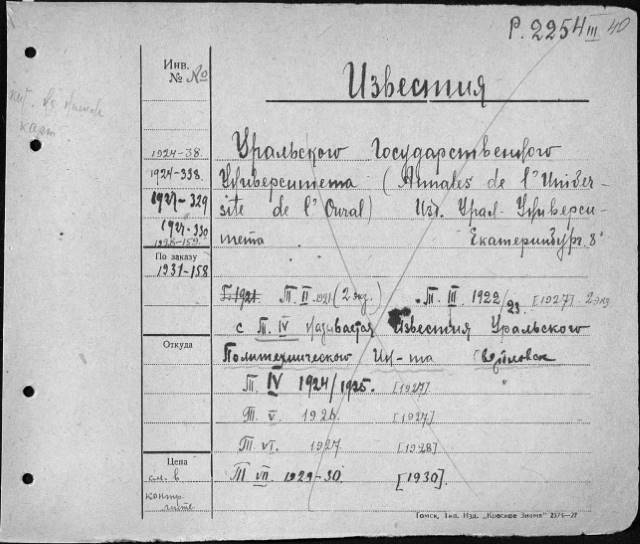 Р. 2254 III 40
Инв. № Ro
Известия
кат.
карт
1924-38.
Уральского Государственного
1924-338.
Университета (Annales de l'Univer-
1927-329
site de l'Oural) Изд. Урал. Универси-
1927-330
тета Екатеринбург. 8°
По заказу
1931-158
Т. 1921. Т. II 1921 (2 экз.) Т. III. 1922/23. [1927] 2 экз
с Т. IV называется Известия Уральского
Откуда
Политехнического Ин-та Свердловск
Т. IV 1924/1925. [1927]
Т. V. 192 [1927]
Т. VI. 1927 [1928]
Цена
Т VII 1929-30 [1930].
см. в
контр.
листе
Томск, Тип. Изд. „Красное Знамя" 2575—27